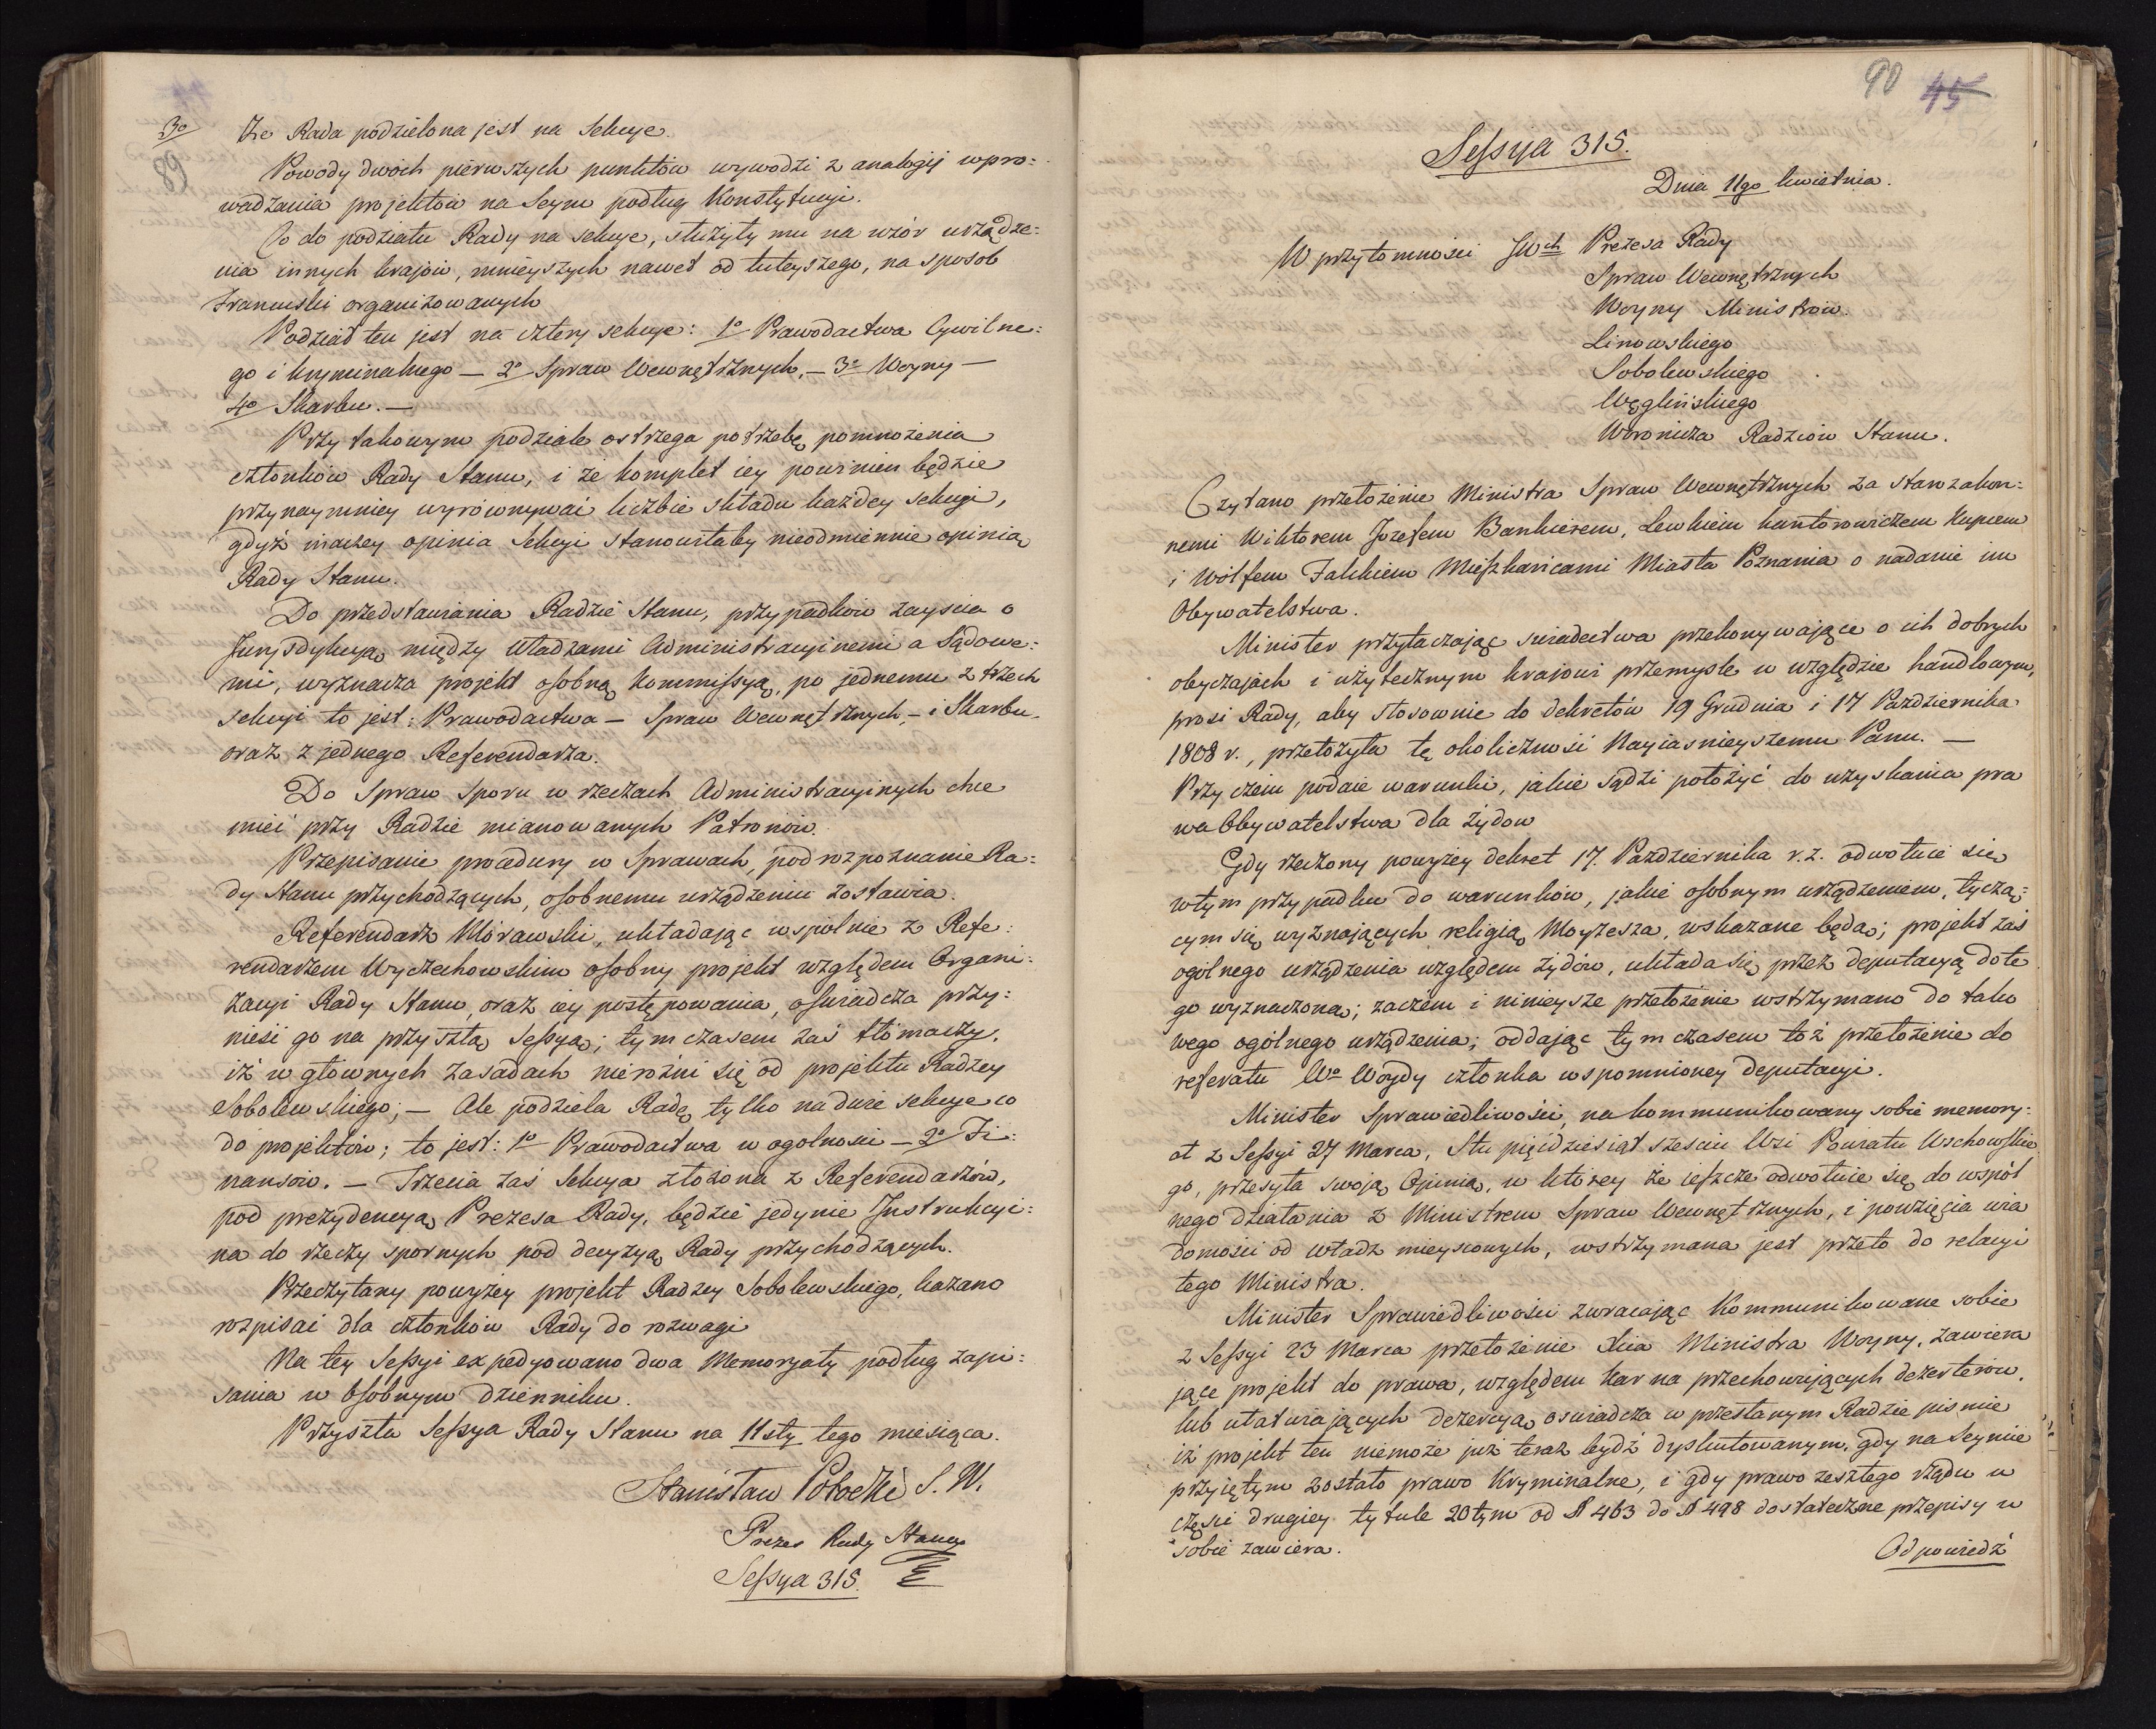 3o Że Rada podzielona jest na Sekcye.
89
Powody dwóch pierwszych punktów wywodzi z analogij wpro:
wadzania projektów na Seym podług Konstytucyi.
Co do podziału Rady na sekcye, służyły mu na wzór urządze:
nia innych kraiów, mnieyszych nawet od tuteyszego, na sposob
Francuski organizowanych
Podział ten jest na cztery sekcye: 1o Prawodactwa Cywilne:
go i kryminalnego — 2o Spraw Wewnętrznych, — 3o Woyny —
4o Skarbu. —
Przy takowym podziale ostrzega potrzebę pomnożenia
członków Rady Stanu, i że komplet iey powinien będzie
przynaymniey wyrównywać liczbie składu każdey sekcyi,
gdyż inaczey opinia Sekcyi stanowiłaby nieodmiennie opinią
Rady Stanu.
Do przedstawiania Radzie Stanu, przypadków zayścia o
Jurysdykcyą między Władzami Administracyinemi a Sądowe:
mi, wyznacza projekt osobną Kommissyą, po jednemu z trzech
sekcyi to jest: Prawodactwa — Spraw Wewnętrznych, — i Skarbu,
oraz z jednego Referendarza.
Do Spraw sporu w rzeczach Administracyinych chce
mieć przy Radzie mianowanych Patronów.
Przepisanie procedury w Sprawach, pod rozpoznanie Ra:
dy Stanu przychodzących, osobnemu urządzeniu zostawia.
Referendarz Morawski, układając wspólnie z Refe:
rendarzem Wyczechowskim osobny projekt względem Organi:
zacyi Rady Stanu, oraz iey postępowania, oświadcza przy:
nieść go na przyszłą Sessyą; tym czasem zaś tłómaczy,
iż w głównych zasadach nieróżni się od projektu Radzcy
Sobolewskiego; — Ale podziela Radę tylko na dwie sekcye co
do projektów; to jest: 1o Prawodactwa w ogolności — 2o Fi:
nansów. — Trzecia zaś Sekcya złożona z Referendarzów,
pod prezydencyą Prezesa Rady, będzie jedynie Instrukcyi:
na do rzeczy spornych pod decyzyą Rady przychodzących.
Przeczytany powyżey projekt Radzcy Sobolewskiego, kazano
rozpisać dla członków Rady do rozwagi
Na tey Sessyi expedyowano dwa Memoryały podług zapi:
sania w Osobnym Dzienniku.
Przyszła Sessya Rady Stanu na 11sty tego miesiąca.
Stanisław Potocki S. W.
Prezes Rady Stanu
Sessya 315.
90 45
Sessya 315.
Dnia 11go Kwietnia.
W przytomności JWch Prezesa Rady
Spraw Wewnętrznych
Woyny Ministrów.
Linowskiego
Sobolewskiego
Węglińskiego
Woronicza Radzców Stanu.
Czytano przełożenie Ministra Spraw Wewnętrznych za starozakon:
nemi Wiktorem Jozefem Bankierem, Lewkiem Kantorowiczem Kupcem
i Wolfem Falkiem Mieszkańcami Miasta Poznania o nadanie im
Obywatelstwa.
Minister przytaczając świadectwa przekonywające o ich dobrych
obyczajach i użytecznym kraiowi przemysle w względzie handlowym,
prosi Rady, aby stosownie do dekretów 19 Grudnia i 17 Pazdziernika
1808 r., przełożyła tę okoliczność Nayiasnieyszemu Panu. —
Przy czem podaie warunki, jakie sądzi położyć do uzyskania pra
wa Obywatelstwa dla Żydow
Gdy rzeczony powyżey dekret 17. Pazdziernika r. z. odwołuie się
w tym przypadku do warunków, jakie osobnym urządzeniem, tyczą:
cym się wyznających religią Moyżesza, wskazane będą; projekt zaś
ogólnego urządzenia względem żydów, układa się przez deputacyą do te
go wyznaczoną; zaczem i ninieysze przełożenie wstrzymano do tako
wego ogólnego urządzenia; oddając tym czasem toż przełożenie do
referatu Wo Woydy członka wspomnioney deputacyi.
Minister Sprawiedliwości, na kommunikowany sobie memory:
ał z Sessyi 27 Marca, Stu pięćdziesiąt sześciu Wsi Powiatu Wschowskie
go, przesyła swoją Opinią, w którey że ieszcze odwołuie się do wspól
nego działania z Ministrem Spraw Wewnętrznych, i powzięcia wia
domości od władz mieyscowych, wstrzymana jest przeto do relacyi
tego Ministra.
Minister Sprawiedliwości zwracając Kommunikowane sobie
z Sessyi 23 Marca przełożenie Xcia Ministra Woyny, zawiera
jące projekt do prawa, względem kar na przechowujących dezerterów,
lub ułatwiających dezercyą, oswiadcza w przesłanym Radzie pismie
iż projekt ten niemoże już teraz bydź dyskutowanym, gdy na Seymie
przyiętym zostało prawo Kryminalne, i gdy prawo zeszłego rządu w
części drugiey tytule 20tym od § 463 do § 498 dostateczne przepisy w
sobie zawiera.
Odpowiedź